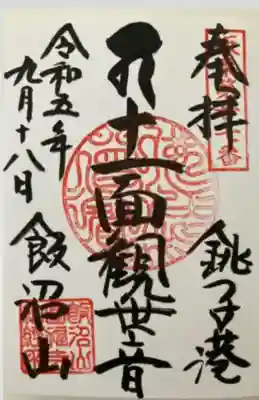 奉拝
銚子港
十一面觀世音
令和五年
九月十八日
飯沼山